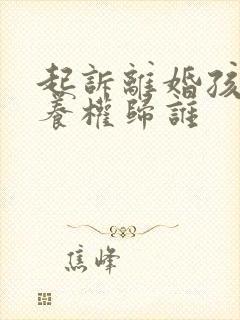 起訴離婚孩
養權歸誰
焦峰